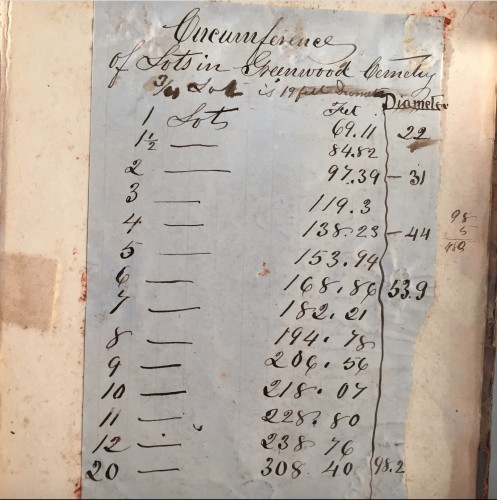 Circumference
of Lots in Greenwood Cemetry
3/4 Lot is 19 feet Diameter
Feet Diameter
1 Lots 69.11 22
1½ — 84.82
2 — 97.39 – 31
3 — 119.3
4 — 138.23 – 44
5 — 153.94
6 — 168.86 53.9
7 — 182.21
8 — 194.78
9 — 206.56
10 — 218.07
11 — 228.80
12 — 238 76
20 — 308.40 98.2
98
5